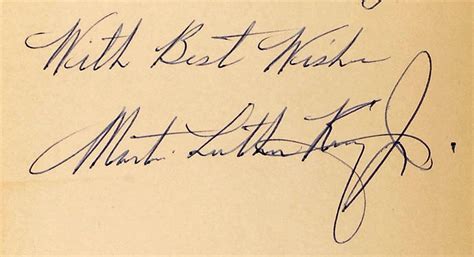 With Best Wishes
Martin Luther King Jr.